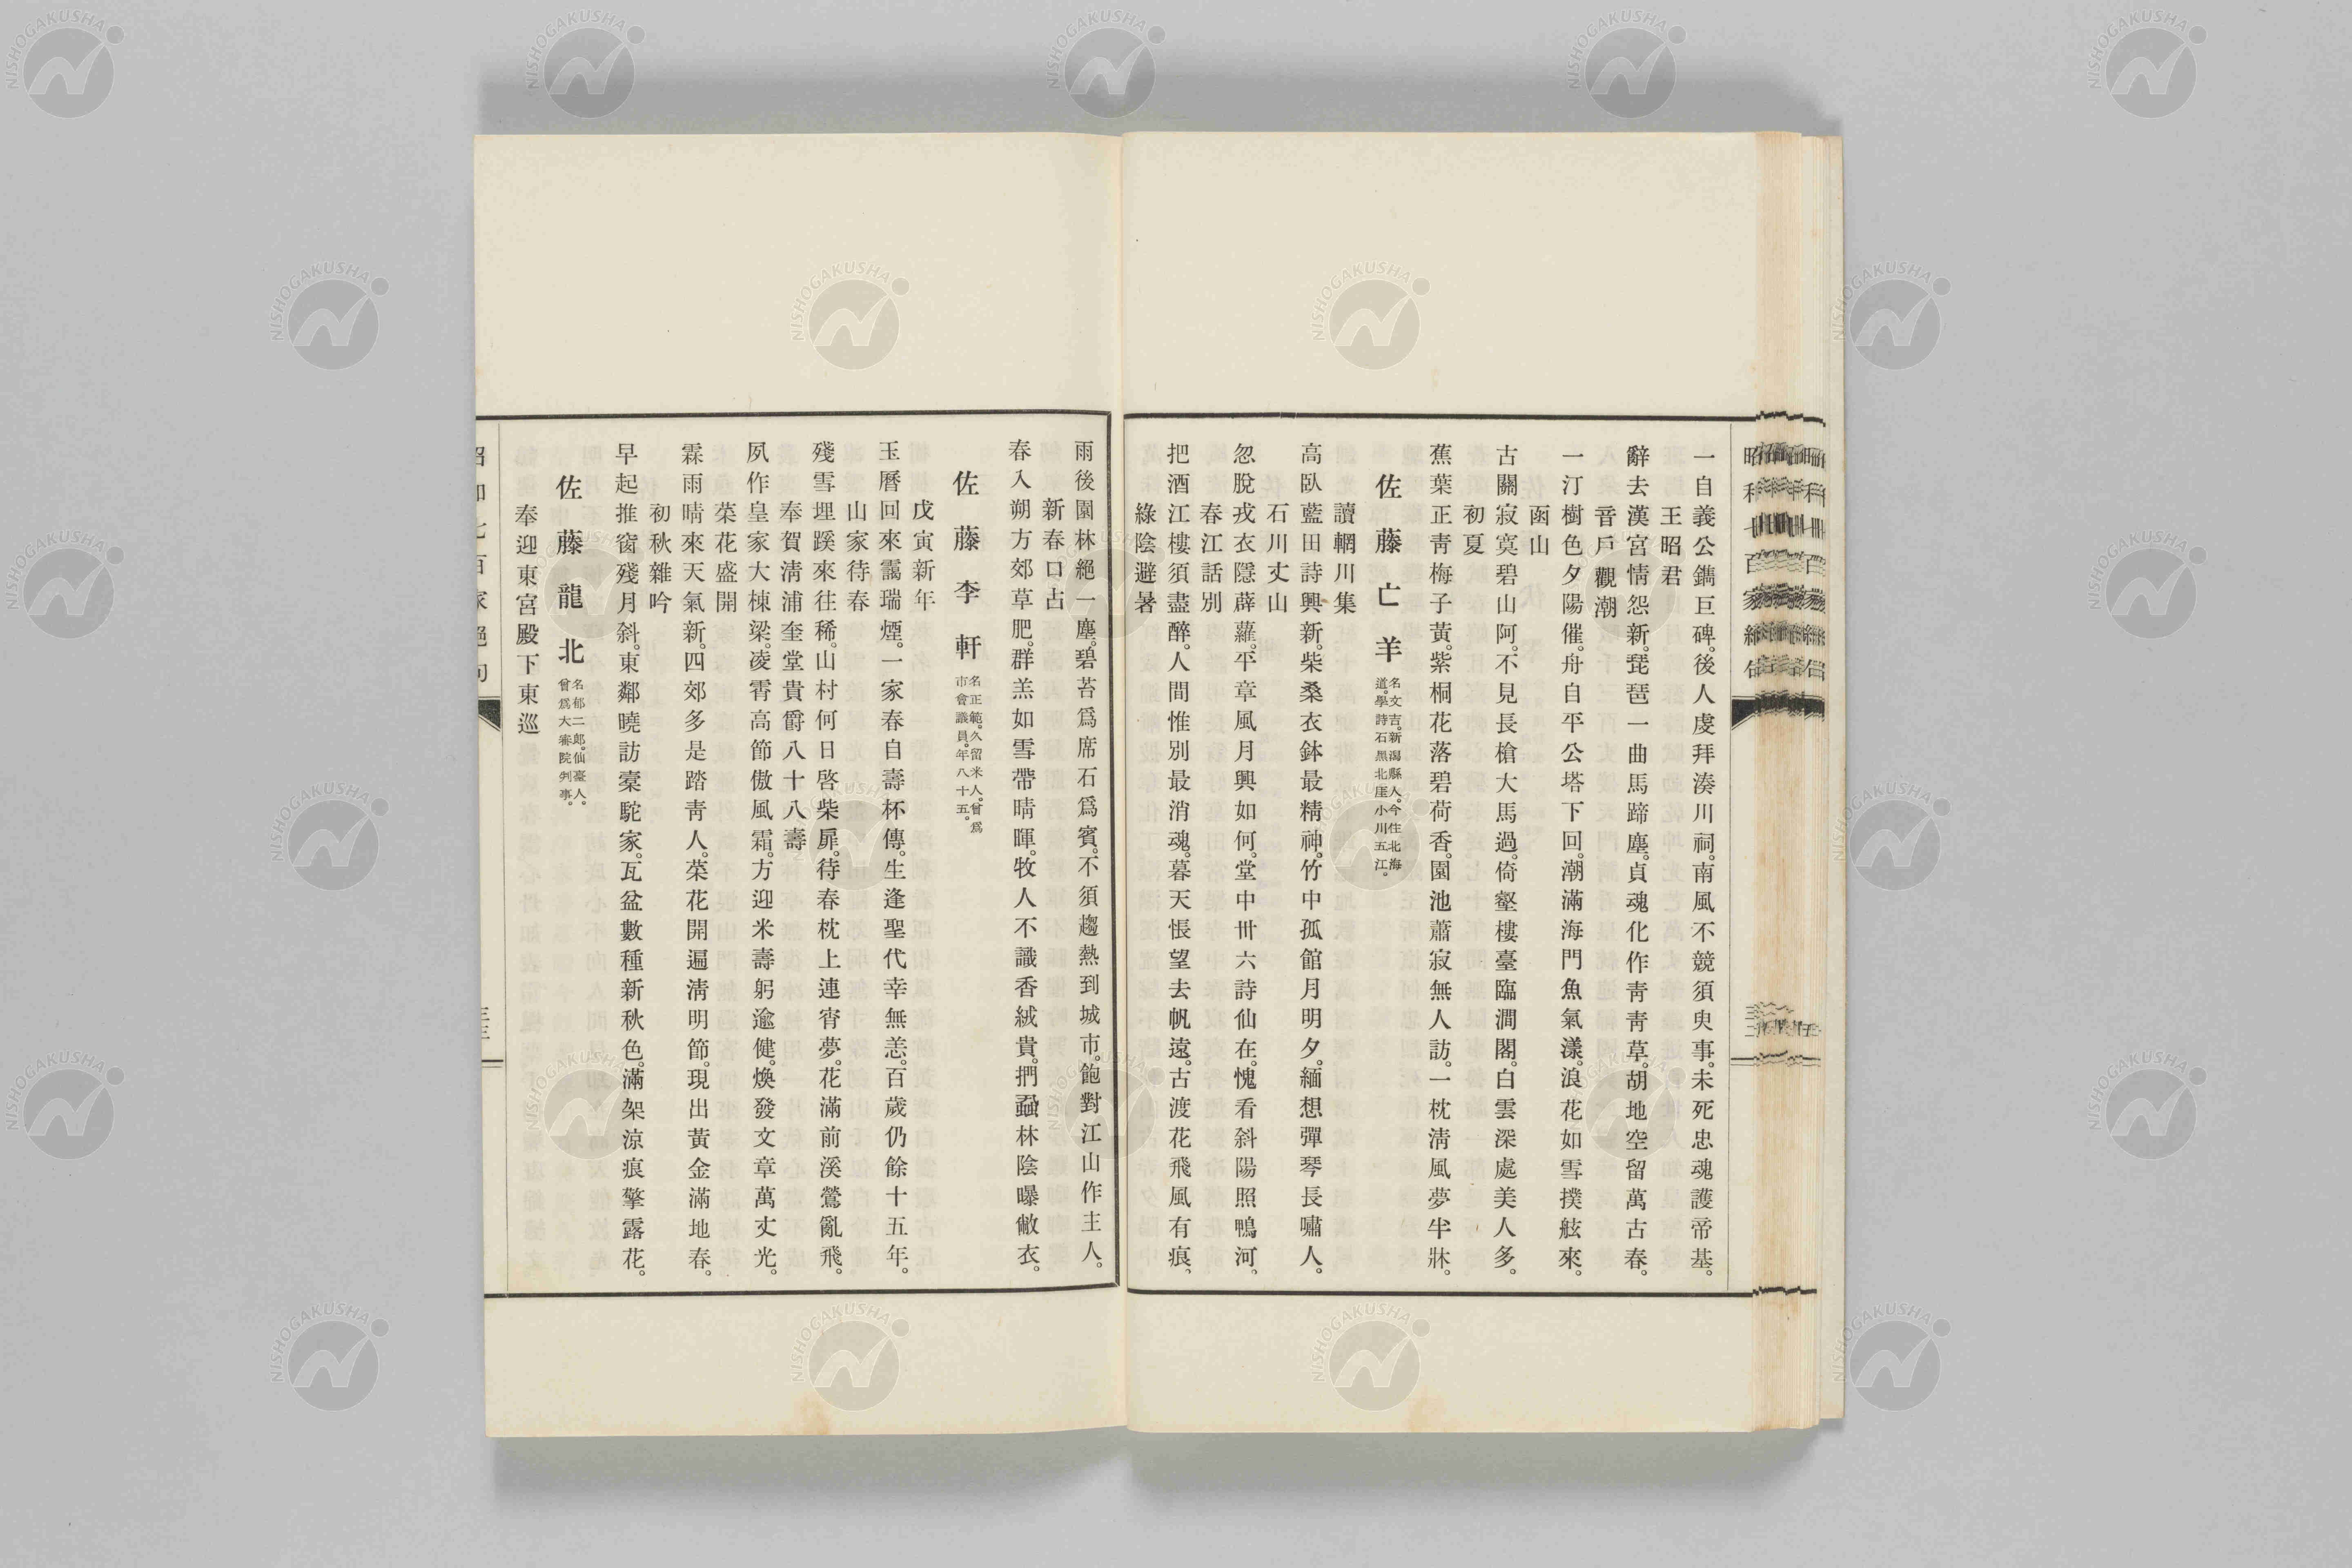 一自義公鐫巨碑。後人虔拜湊川祠。南風不競須臾事。未死忠魂護帝基。
王昭君
辭去漢宮情怨新。琵琶一曲馬蹄塵。貞魂化作靑靑草。胡地空留萬古春。
音戶觀潮
一汀樹色夕陽催。舟自平公塔下回。潮滿海門魚氣漾。浪花如雪撲舷來。
函山
古關寂寞碧山阿。不見長槍大馬過。倚壑樓臺臨澗閣。白雲深處美人多。
初夏
蕉葉正靑梅子黃。紫桐花落碧荷香。園池蕭寂無人訪。一枕淸風夢半牀。
佐藤亡羊
名文吉。新潟縣人。今住北海
道。學詩石黑北厓小川五江。
讀輞川集
高臥藍田詩興新。柴桑衣鉢最精神。竹中孤館月明夕。緬想彈琴長嘯人。
石川丈山
忽脫戎衣隱薜蘿。平章風月興如何。堂中卅六詩仙在。愧看斜陽照鴨河。
春江話別
把酒江樓須盡醉。人間惟別最消魂。暮天悵望去帆遠。古渡花飛風有痕。
綠陰避暑
雨後園林絕一塵。碧苔爲席石爲賓。不須趨熱到城市。飽對江山作主人。
新春口占
春入朔方郊草肥。群羔如雪帶晴暉。牧人不識香絨貴。捫蝨林陰曝敝衣。
佐藤李軒
名正範。久留米人。曾爲
市會議員。年八十五。
戊寅新年
玉曆回來靄瑞煙。一家春自壽杯傳。生逢聖代幸無恙。百歲仍餘十五年。
山家待春
殘雪埋蹊來往稀。山村何日啓柴扉。待春枕上連宵夢。花滿前溪鶯亂飛。
奉賀淸浦奎堂貴爵八十八壽
夙作皇家大棟梁。凌霄高節傲風霜。方迎米壽躬逾健。煥發文章萬丈光。
菜花盛開
霖雨晴來天氣新。四郊多是踏靑人。菜花開遍淸明節。現出黃金滿地春。
初秋雜吟
早起推窗殘月斜。東鄰曉訪橐駝家。瓦盆數種新秋色。滿架涼痕擎露花。
佐藤龍北
名郁二郎。仙臺人。
曾爲大審院判事。
奉迎東宮殿下東巡